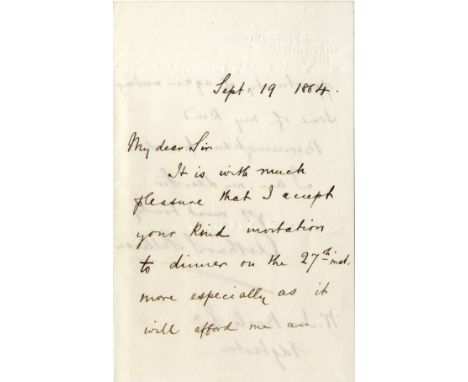 Sept: 19 1864.
My dear Sir
It is with much
pleasure that I accept
your kind invitation
to dinner on the 27th inst.
more especially as it
will afford me an